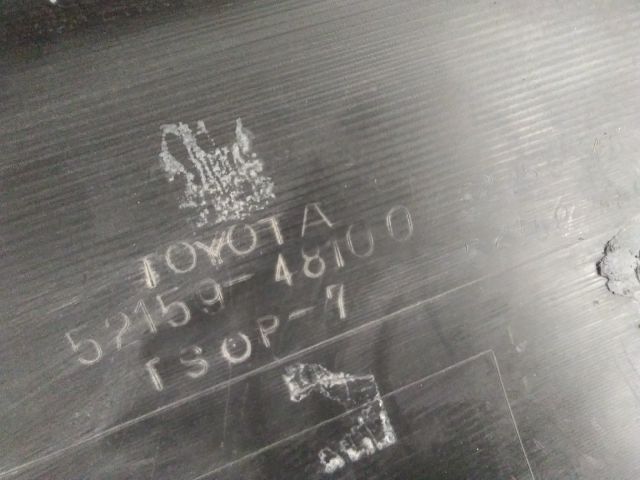 TOYOTA
52159-48100
TSOP-7